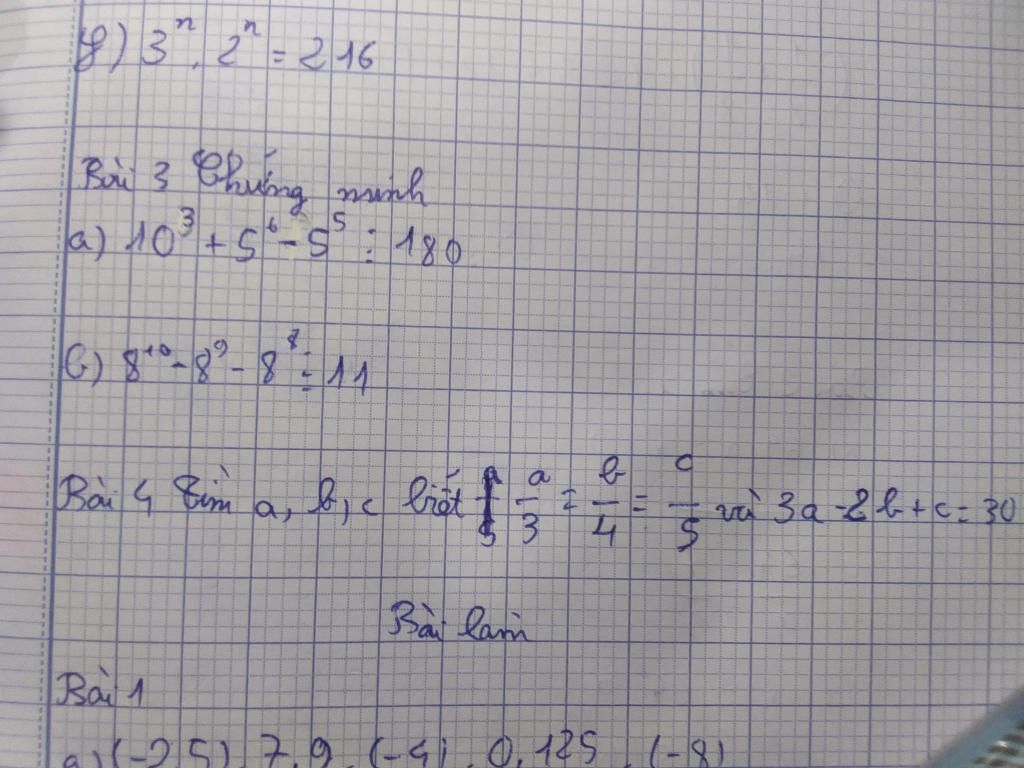 g) 3ⁿ . 2ⁿ = 216
Bài 3 Chứng minh
a) 10³ + 5⁶ - 5⁵ ⋮ 180
b) 8¹⁰ - 8⁹ - 8⁸ ⋮ 11
Bài 4 Tìm a, b, c biết a/3 = b/4 = c/5 và 3a - 2b + c = 30
Bài làm
Bài 1
a) (-2,5) . 7,9 . (-4) . 0,125 . (-8)